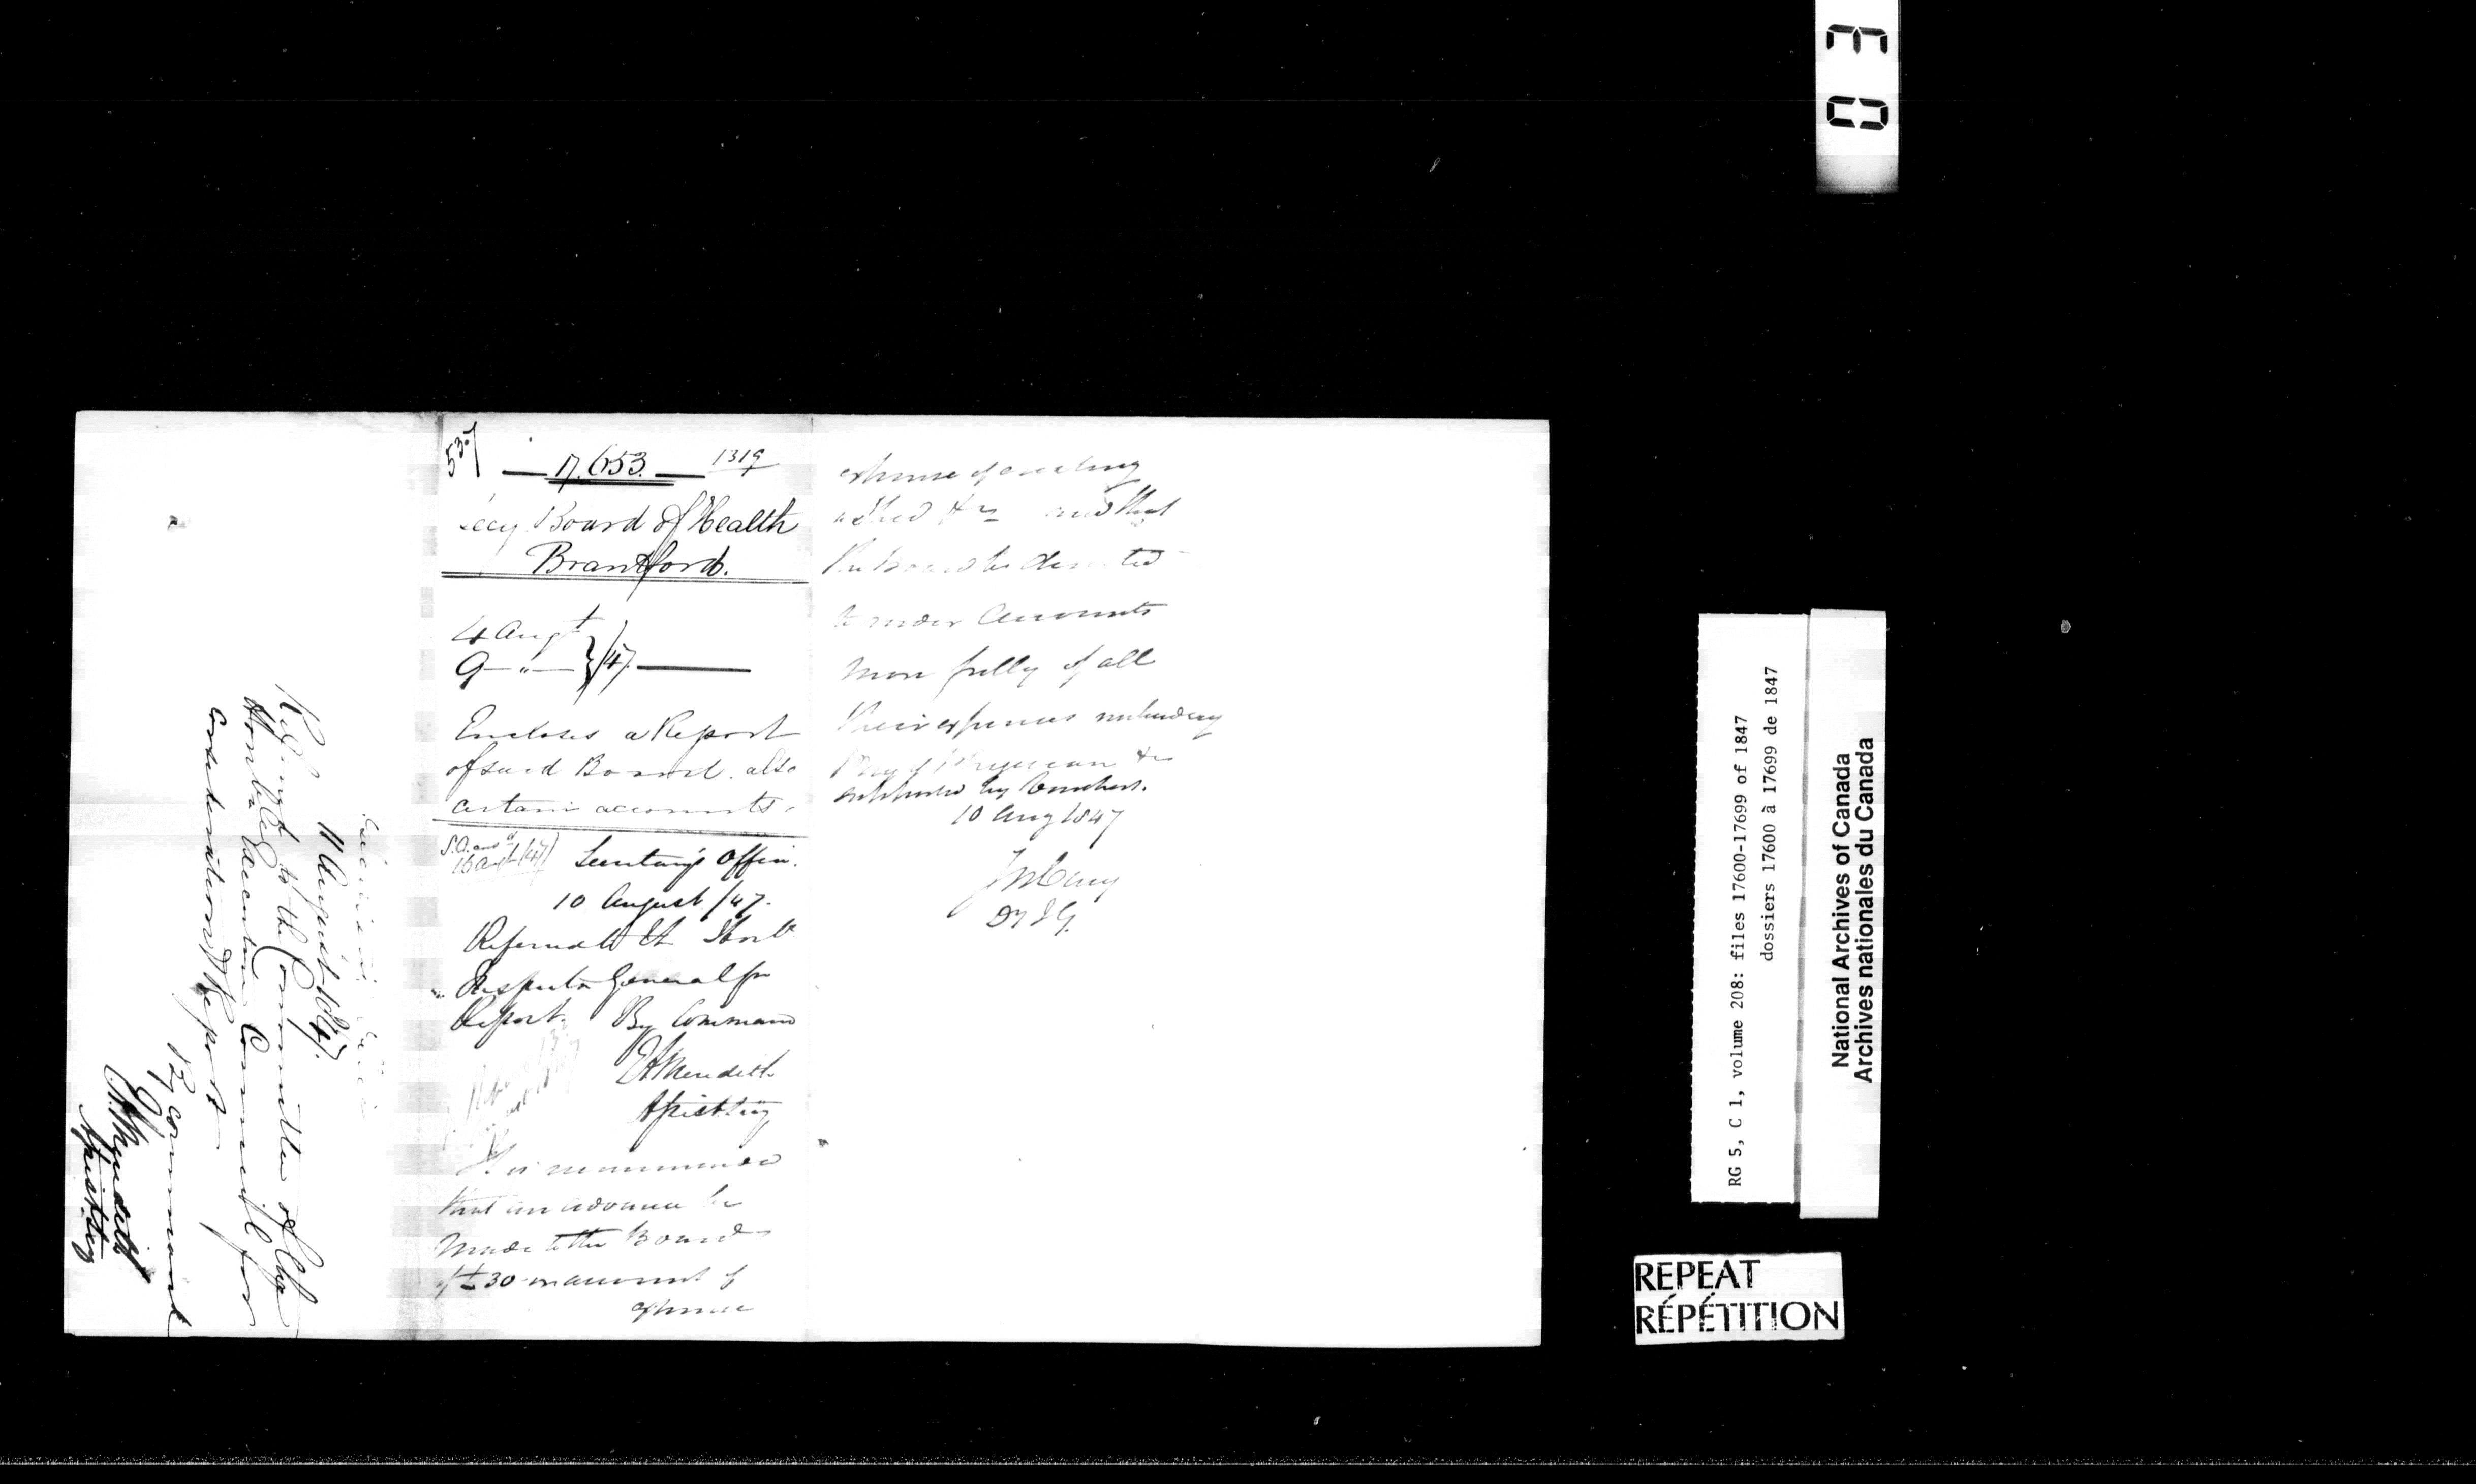 537
17.653. 1319
Secy Board of Health
Brantford.
4 Augt
9 " } /47.
Encloses a Report
of said Board. also
certain accounts.
S.O. ansd
16 Augt /47
Secretary's Office.
10 August /47.
Referred to the Honble
Inspector General for
Report. By Command
EA Meredith
Assist. Secy
It is recommended
that an advance be
made to the Board
of £30 on account of
expense
expense of erecting
a Shed &c and that
the Board be directed
to render Accounts
more fully of all
their expenses including
Pay of Physician &c
supported by Vouchers.
10 Aug 1847
J M Cary
Dy I G.
11 August 1847.
Referred to the Committee of the
Honble Executive Council for
consideration & Report
By Command
E A Meredith
Assist. Secy
03
RG 5, C 1, volume 208: files 17600-17699 of 1847
dossiers 17600 à 17699 de 1847
National Archives of Canada
Archives nationales du Canada
REPEAT
RÉPÉTITION